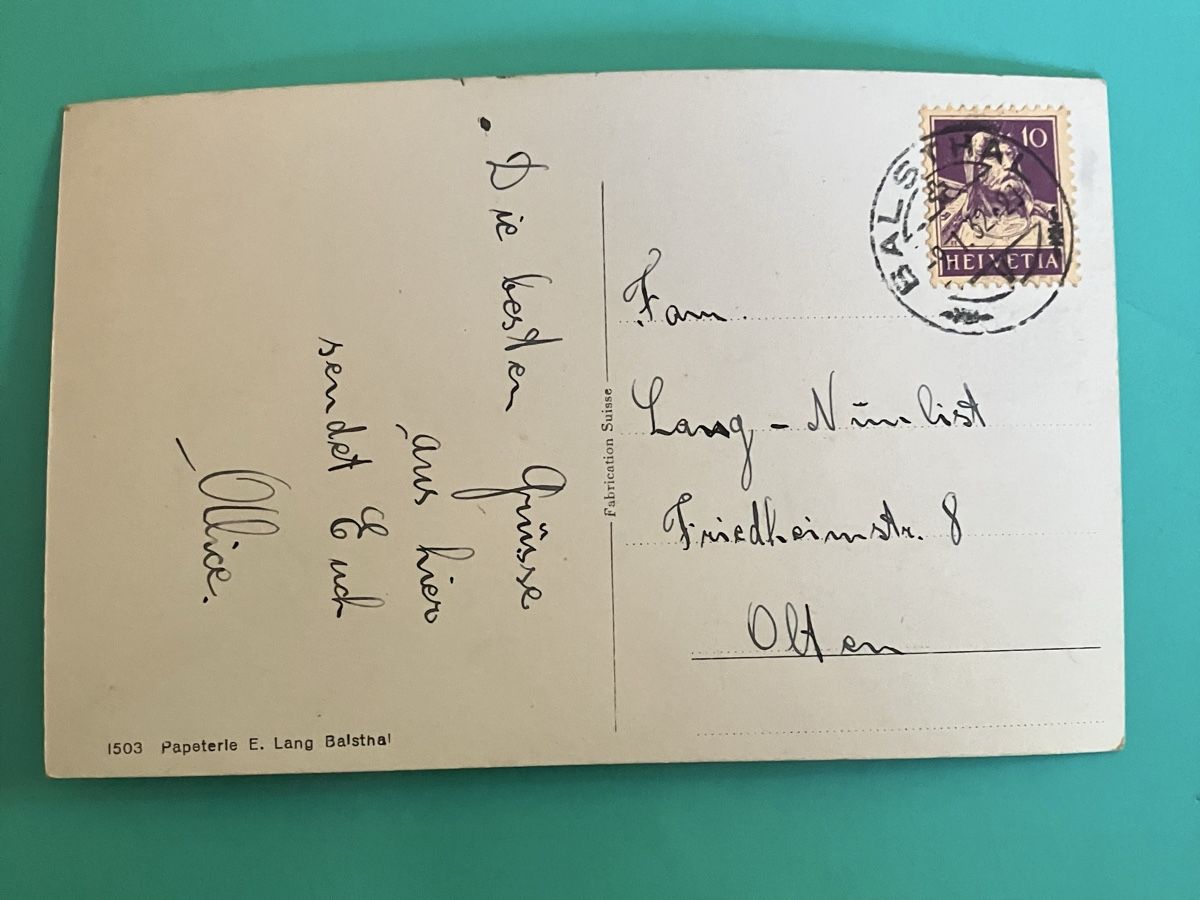 Die besten Grüsse
aus hier
sendet Euch
Alice.
1503 Papeterie E. Lang Balsthal
Fabrication Suisse
10
HELVETIA
BALSTHAL
Fam.
Lang-Nünlist
Friedheimstr. 8
Olten